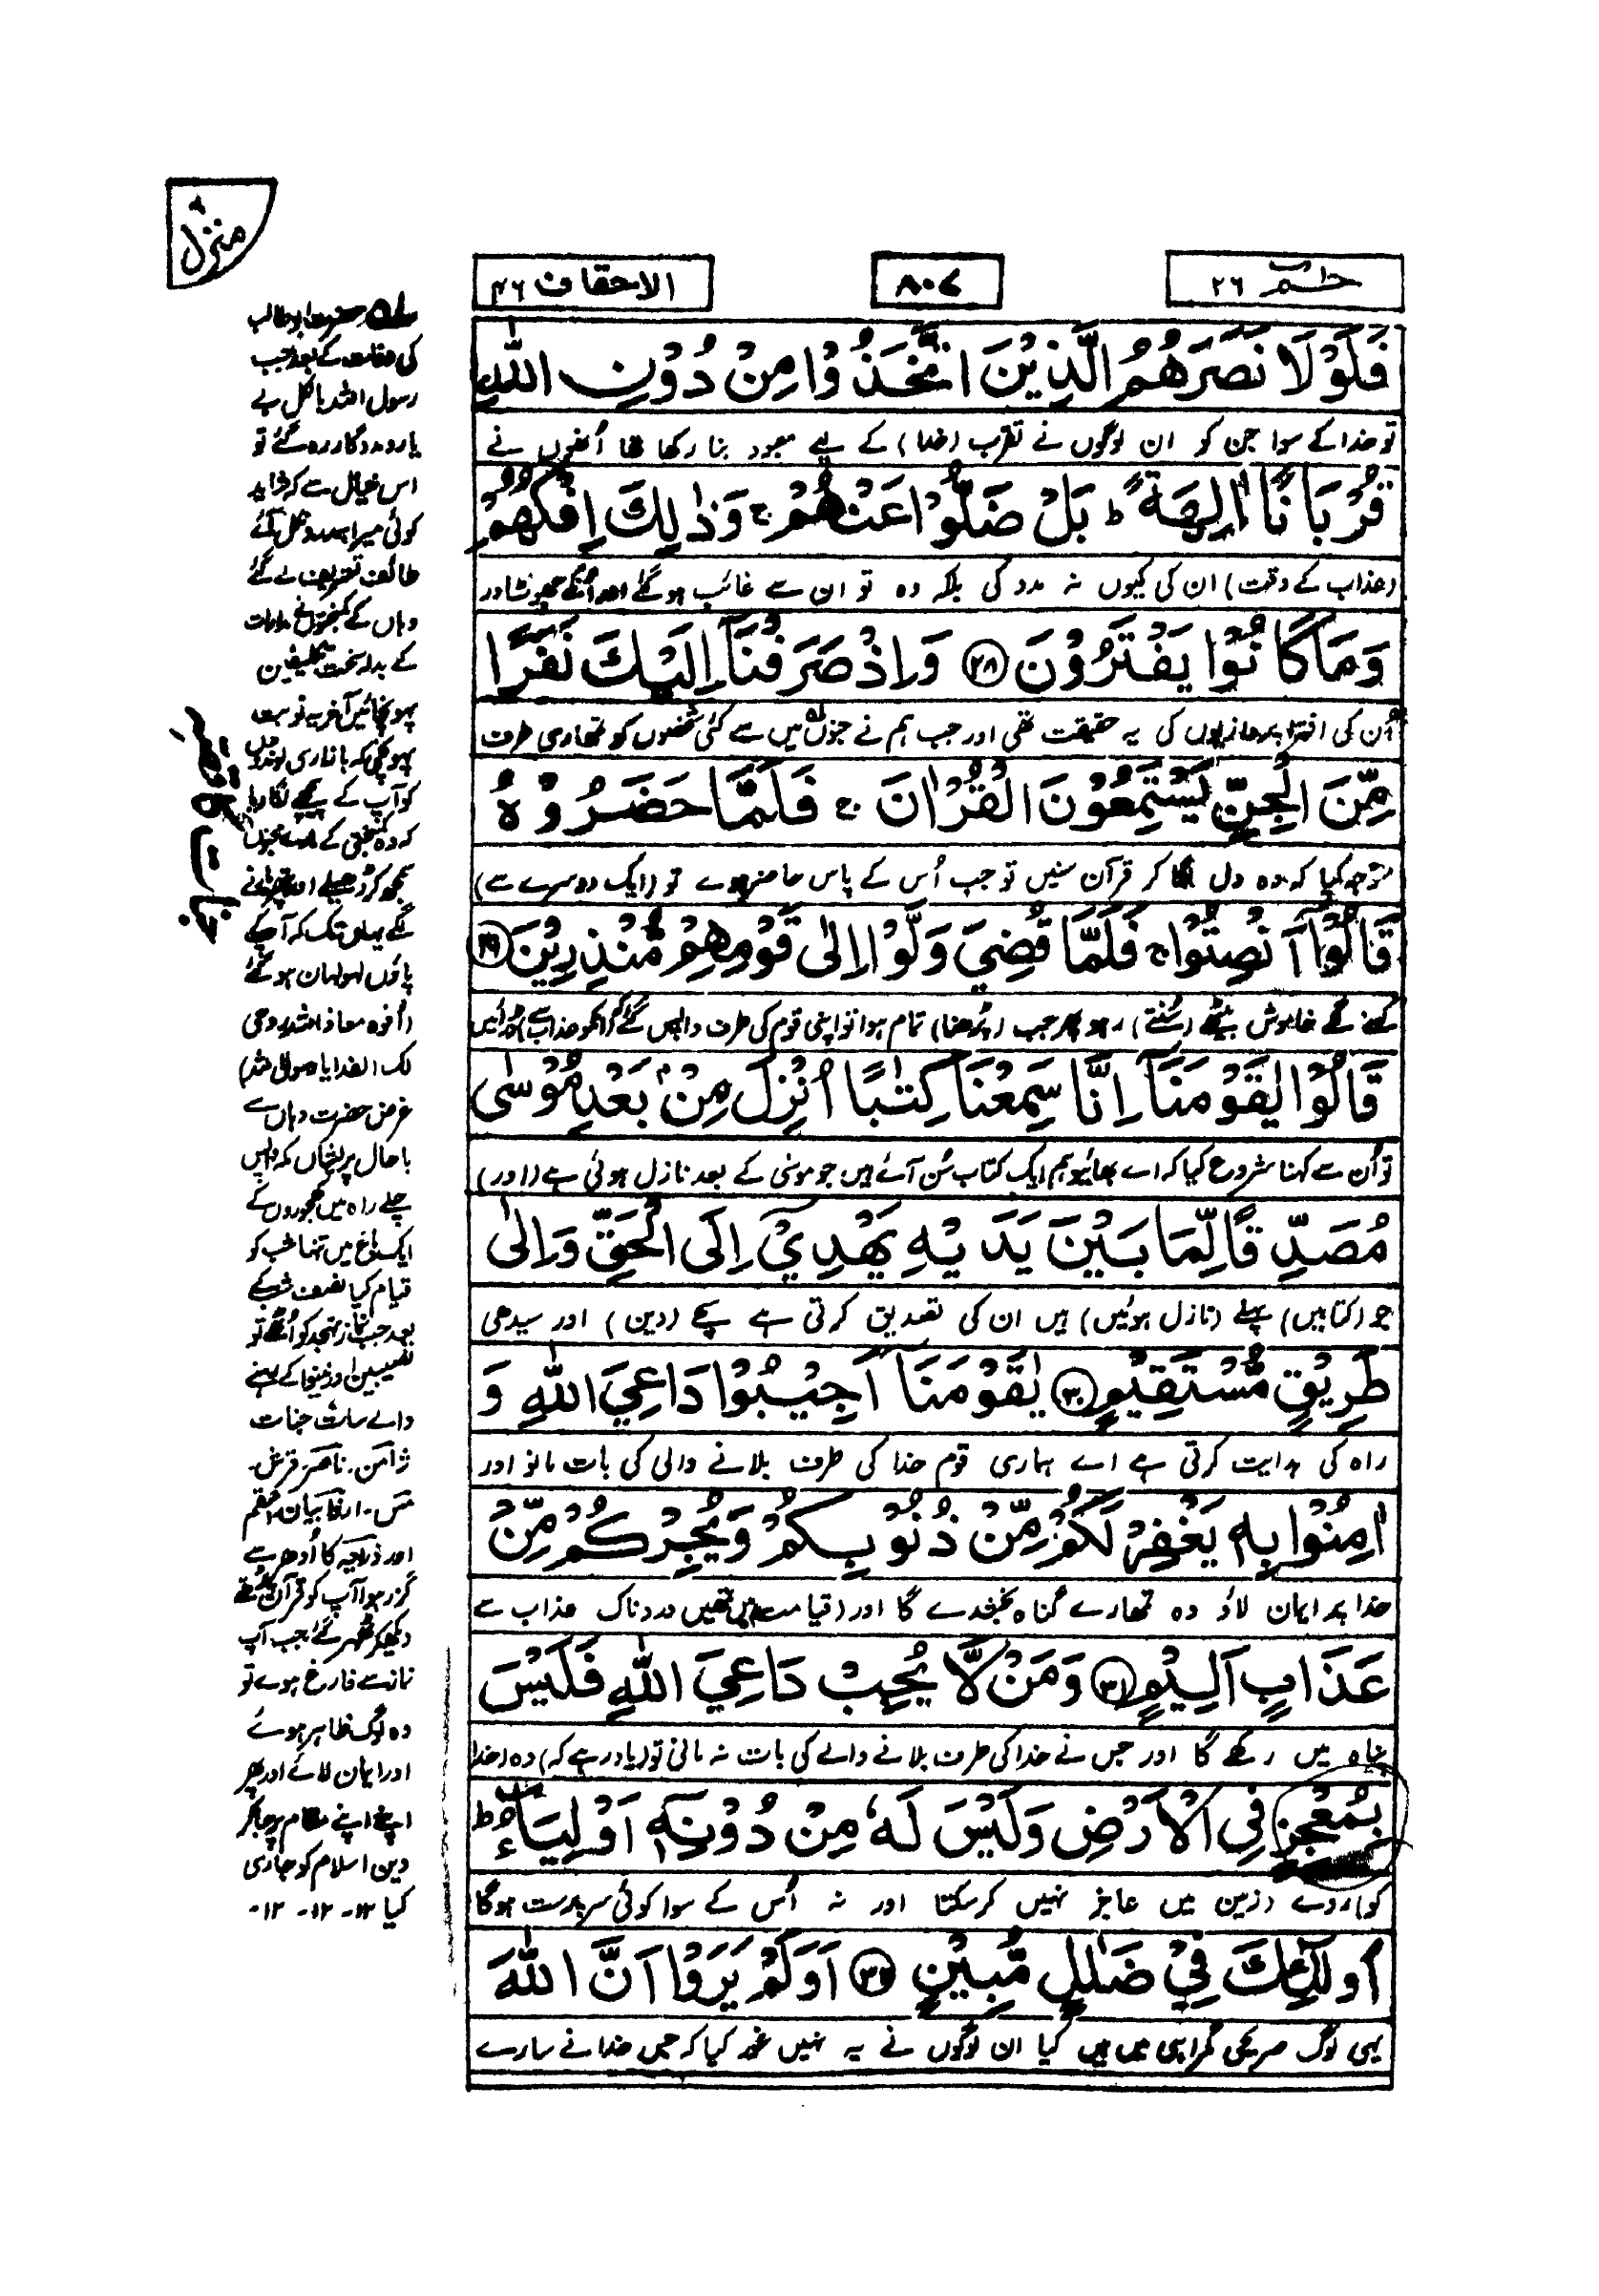 منزل ۶
حٰمٓ ۲۶
۸۰۷
الاحقاف ۴۶
فَلَوْلَا نَصَرَهُمُ الَّذِيْنَ اتَّخَذُوْا مِنْ دُوْنِ اللّٰهِ
تو خدا کے سوا جن کو ان لوگوں نے تقرب (خدا) کے لیے معبود بنا رکھا تھا اُنھوں نے
قُرْبَانًا اٰلِهَةً ؕ بَلْ ضَلُّوْا عَنْهُمْ ۚ وَذٰلِكَ اِفْكُهُمْ
(عذاب کے وقت) ان کی کیوں نہ مدد کی بلکہ وہ تو ان سے غائب ہو گئے اور اُنکے جھوٹ اور
وَمَا كَانُوْا يَفْتَرُوْنَ ۲۸ وَاِذْ صَرَفْنَآ اِلَيْكَ نَفَرًا
اُن کی افترا پردازیوں کی یہ حقیقت تھی اور جب ہم نے جنوں میں سے کئی شخصوں کو تمھاری طرف
مِّنَ الْجِنِّ يَسْتَمِعُوْنَ الْقُرْاٰنَ ۚ فَلَمَّا حَضَرُوْهُ
متوجہ کیا کہ وہ دل لگا کر قرآن سنیں تو جب اُس کے پاس حاضر ہوے تو (ایک دوسرے سے)
قَالُوْٓا اَنْصِتُوْا ۚ فَلَمَّا قُضِيَ وَلَّوْا اِلٰى قَوْمِهِمْ مُّنْذِرِيْنَ ۲۹
کہنے لگے خاموش بیٹھے (سُنتے) رہو پھر جب (پڑھنا) تمام ہوا تو اپنی قوم کی طرف واپس گئے کہ انکو عذاب سے ڈرائیں
قَالُوْا يٰقَوْمَنَآ اِنَّا سَمِعْنَا كِتٰبًا اُنْزِلَ مِنْۢ بَعْدِ مُوْسٰى
تو اُن سے کہنا شروع کیا کہ اے بھائیو ہم ایک کتاب سُن آئے ہیں جو موسٰی کے بعد نازل ہوئی ہے (اور)
مُصَدِّقًا لِّمَا بَيْنَ يَدَيْهِ يَهْدِيْٓ اِلَى الْحَقِّ وَاِلٰى
جو (کتابیں) پہلے (نازل ہوئیں) ہیں ان کی تصدیق کرتی ہے سچے (دین) اور سیدھی
طَرِيْقٍ مُّسْتَقِيْمٍ ۳۰ يٰقَوْمَنَآ اَجِيْبُوْا دَاعِيَ اللّٰهِ وَ
راہ کی ہدایت کرتی ہے اے ہماری قوم خدا کی طرف بلانے والی کی بات مانو اور
اٰمِنُوْا بِهٖ يَغْفِرْ لَكُمْ مِّنْ ذُنُوْبِكُمْ وَيُجِرْكُمْ مِّنْ
خدا پر ایمان لاؤ وہ تمھارے گناہ بخشدے گا اور (قیامت) میں تمھیں دردناک عذاب سے
عَذَابٍ اَلِيْمٍ ۳۱ وَمَنْ لَّا يُجِبْ دَاعِيَ اللّٰهِ فَلَيْسَ
پناہ میں رکھے گا اور جس نے خدا کی طرف بلانے والے کی بات نہ مانی تو (یاد رہے کہ) وہ (خدا
بِمُعْجِزٍ فِى الْاَرْضِ وَلَيْسَ لَهٗ مِنْ دُوْنِهٖٓ اَوْلِيَآءُ ؕ
کو) روے زمین میں عاجز نہیں کر سکتا اور نہ اُس کے سوا کوئی سرپرست ہوگا
اُولٰٓئِكَ فِيْ ضَلٰلٍ مُّبِيْنٍ ۳۲ اَوَلَمْ يَرَوْا اَنَّ اللّٰهَ
یہی لوگ صریحی گمراہی میں ہیں کیا ان لوگوں نے یہ نہیں غور کیا کہ جس خدا نے سارے
حضرت ابوطالب
کی وفات کے بعد جب
رسول اللہ بالکل بے
یارو مددگار رہ گئے تو
اس خیال سے کہ شاید
کوئی میرا ہمدرد نکل آئے
طائف تشریف لے گئے
وہاں کے کمبختوں نے مدارات
کے بدلے سخت تکلیفیں
پہونچائیں آخر یہ نوبت
پہونچی کہ بازاری لونڈوں
کو آپ کے پیچھے لگا دیا
کہ وہ کمبختی کے مارے مجنوں
سمجھ کر ڈھیلے اور پتھر مارنے
لگے یہاں تک کہ آپ کے
پاؤں لہولہان ہو گئے
(اُفوہ معاذ اللہ روحی
لک الفدا یا رسول اللہ)
غرض حضرت وہاں سے
باحال پریشاں مکہ واپس
چلے راہ میں کھجوروں کے
ایک باغ میں تنہا شب کو
قیام کیا نصف شب کے
بعد جب نماز تہجد کو اُٹھے تو
نصیبین اور نینوا کے رہنے
والے سات جنات
اور ذلحقہ کا اُدھر سے
گزر ہوا آپ کو قرآن پڑھتے
دیکھ کر ٹھہر گئے جب آپ
نماز سے فارغ ہوے تو
وہ لوگ ظاہر ہوئے
اور ایمان لائے اور پھر
اپنے اپنے مقام پر جا کر
دین اسلام کو جاری
کیا ۱۲- ۱۲- ۱۲-